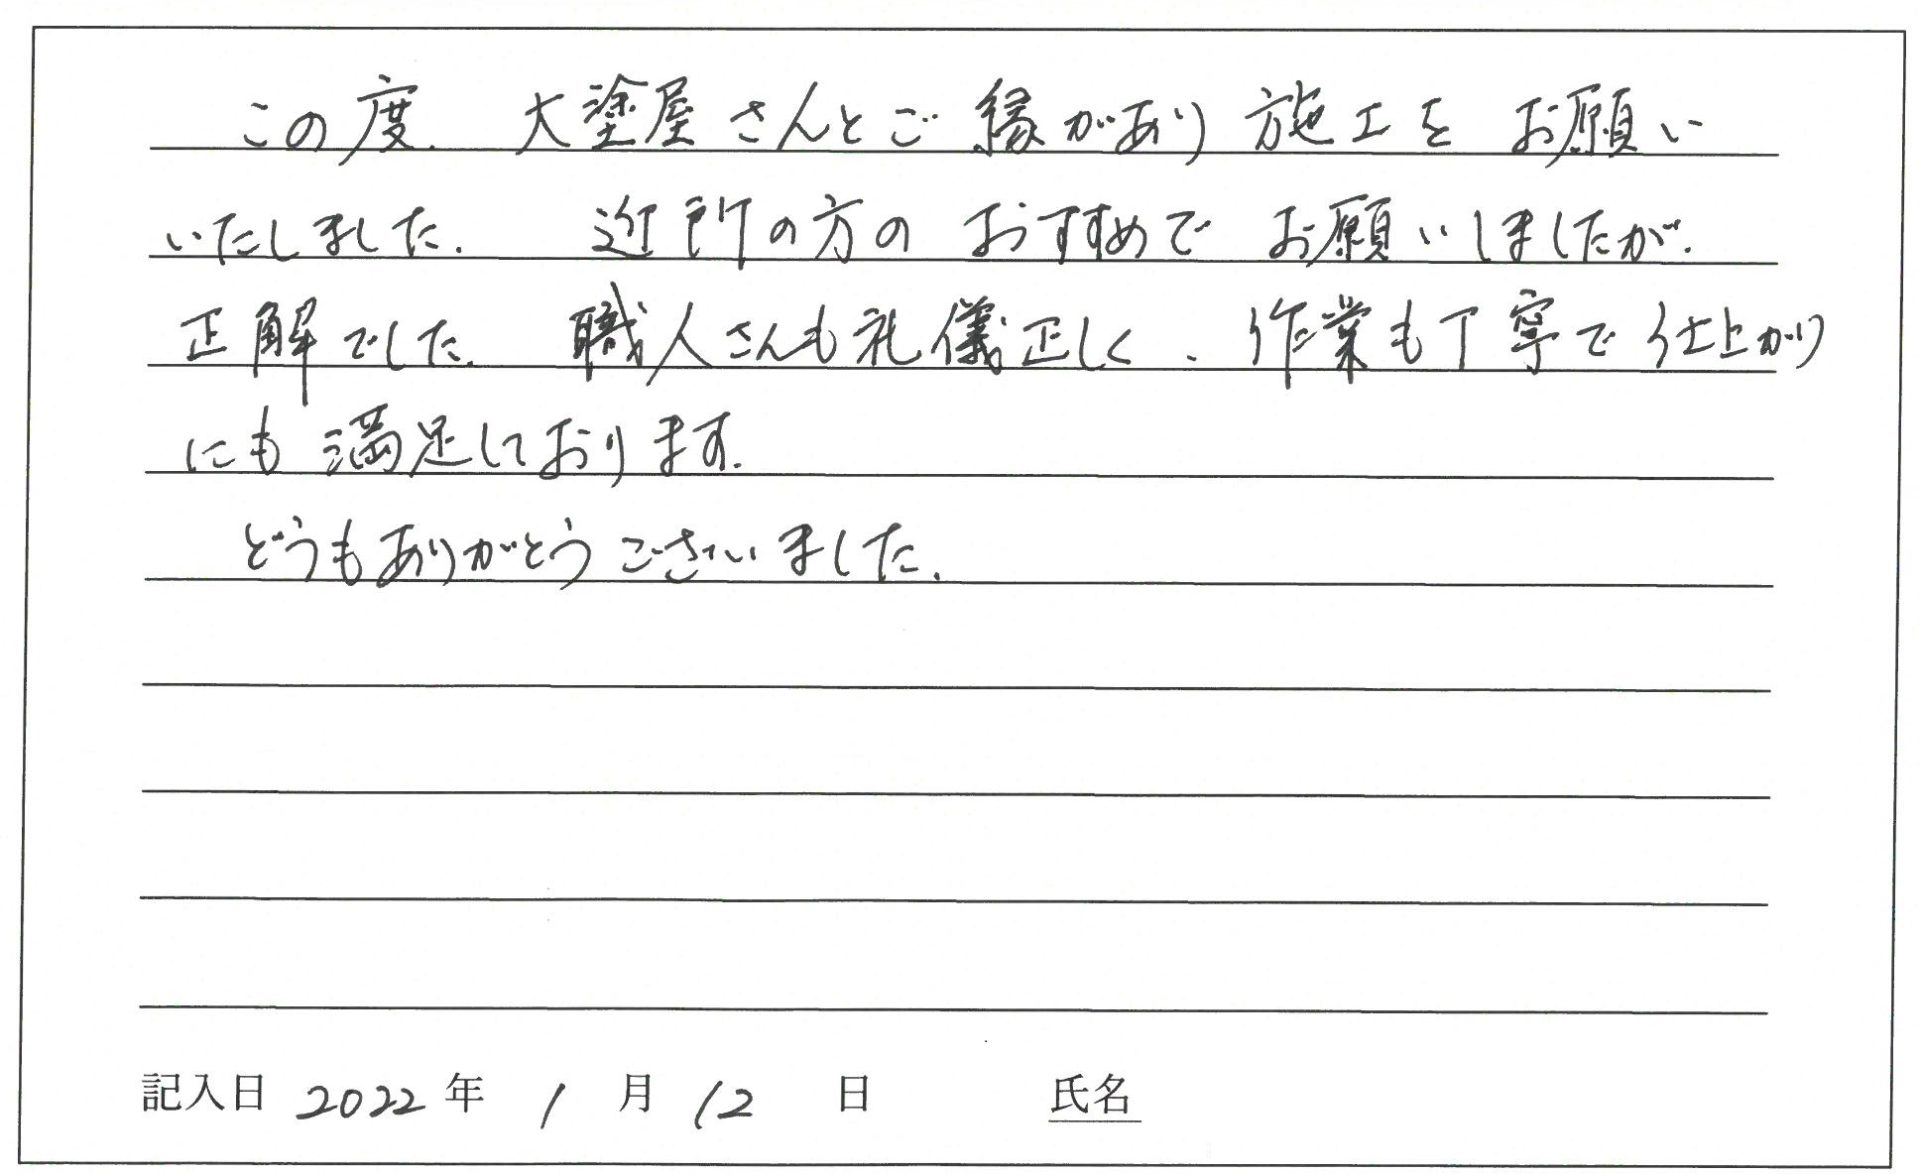 この度、大塗屋さんとご縁があり施工をお願い
いたしました。近所の方のおすすめでお願いしましたが、
正解でした。職人さんも礼儀正しく、作業も丁寧で仕上がり
にも満足しております。
どうもありがとうございました。
記入日 2022 年 1 月 12 日 氏名